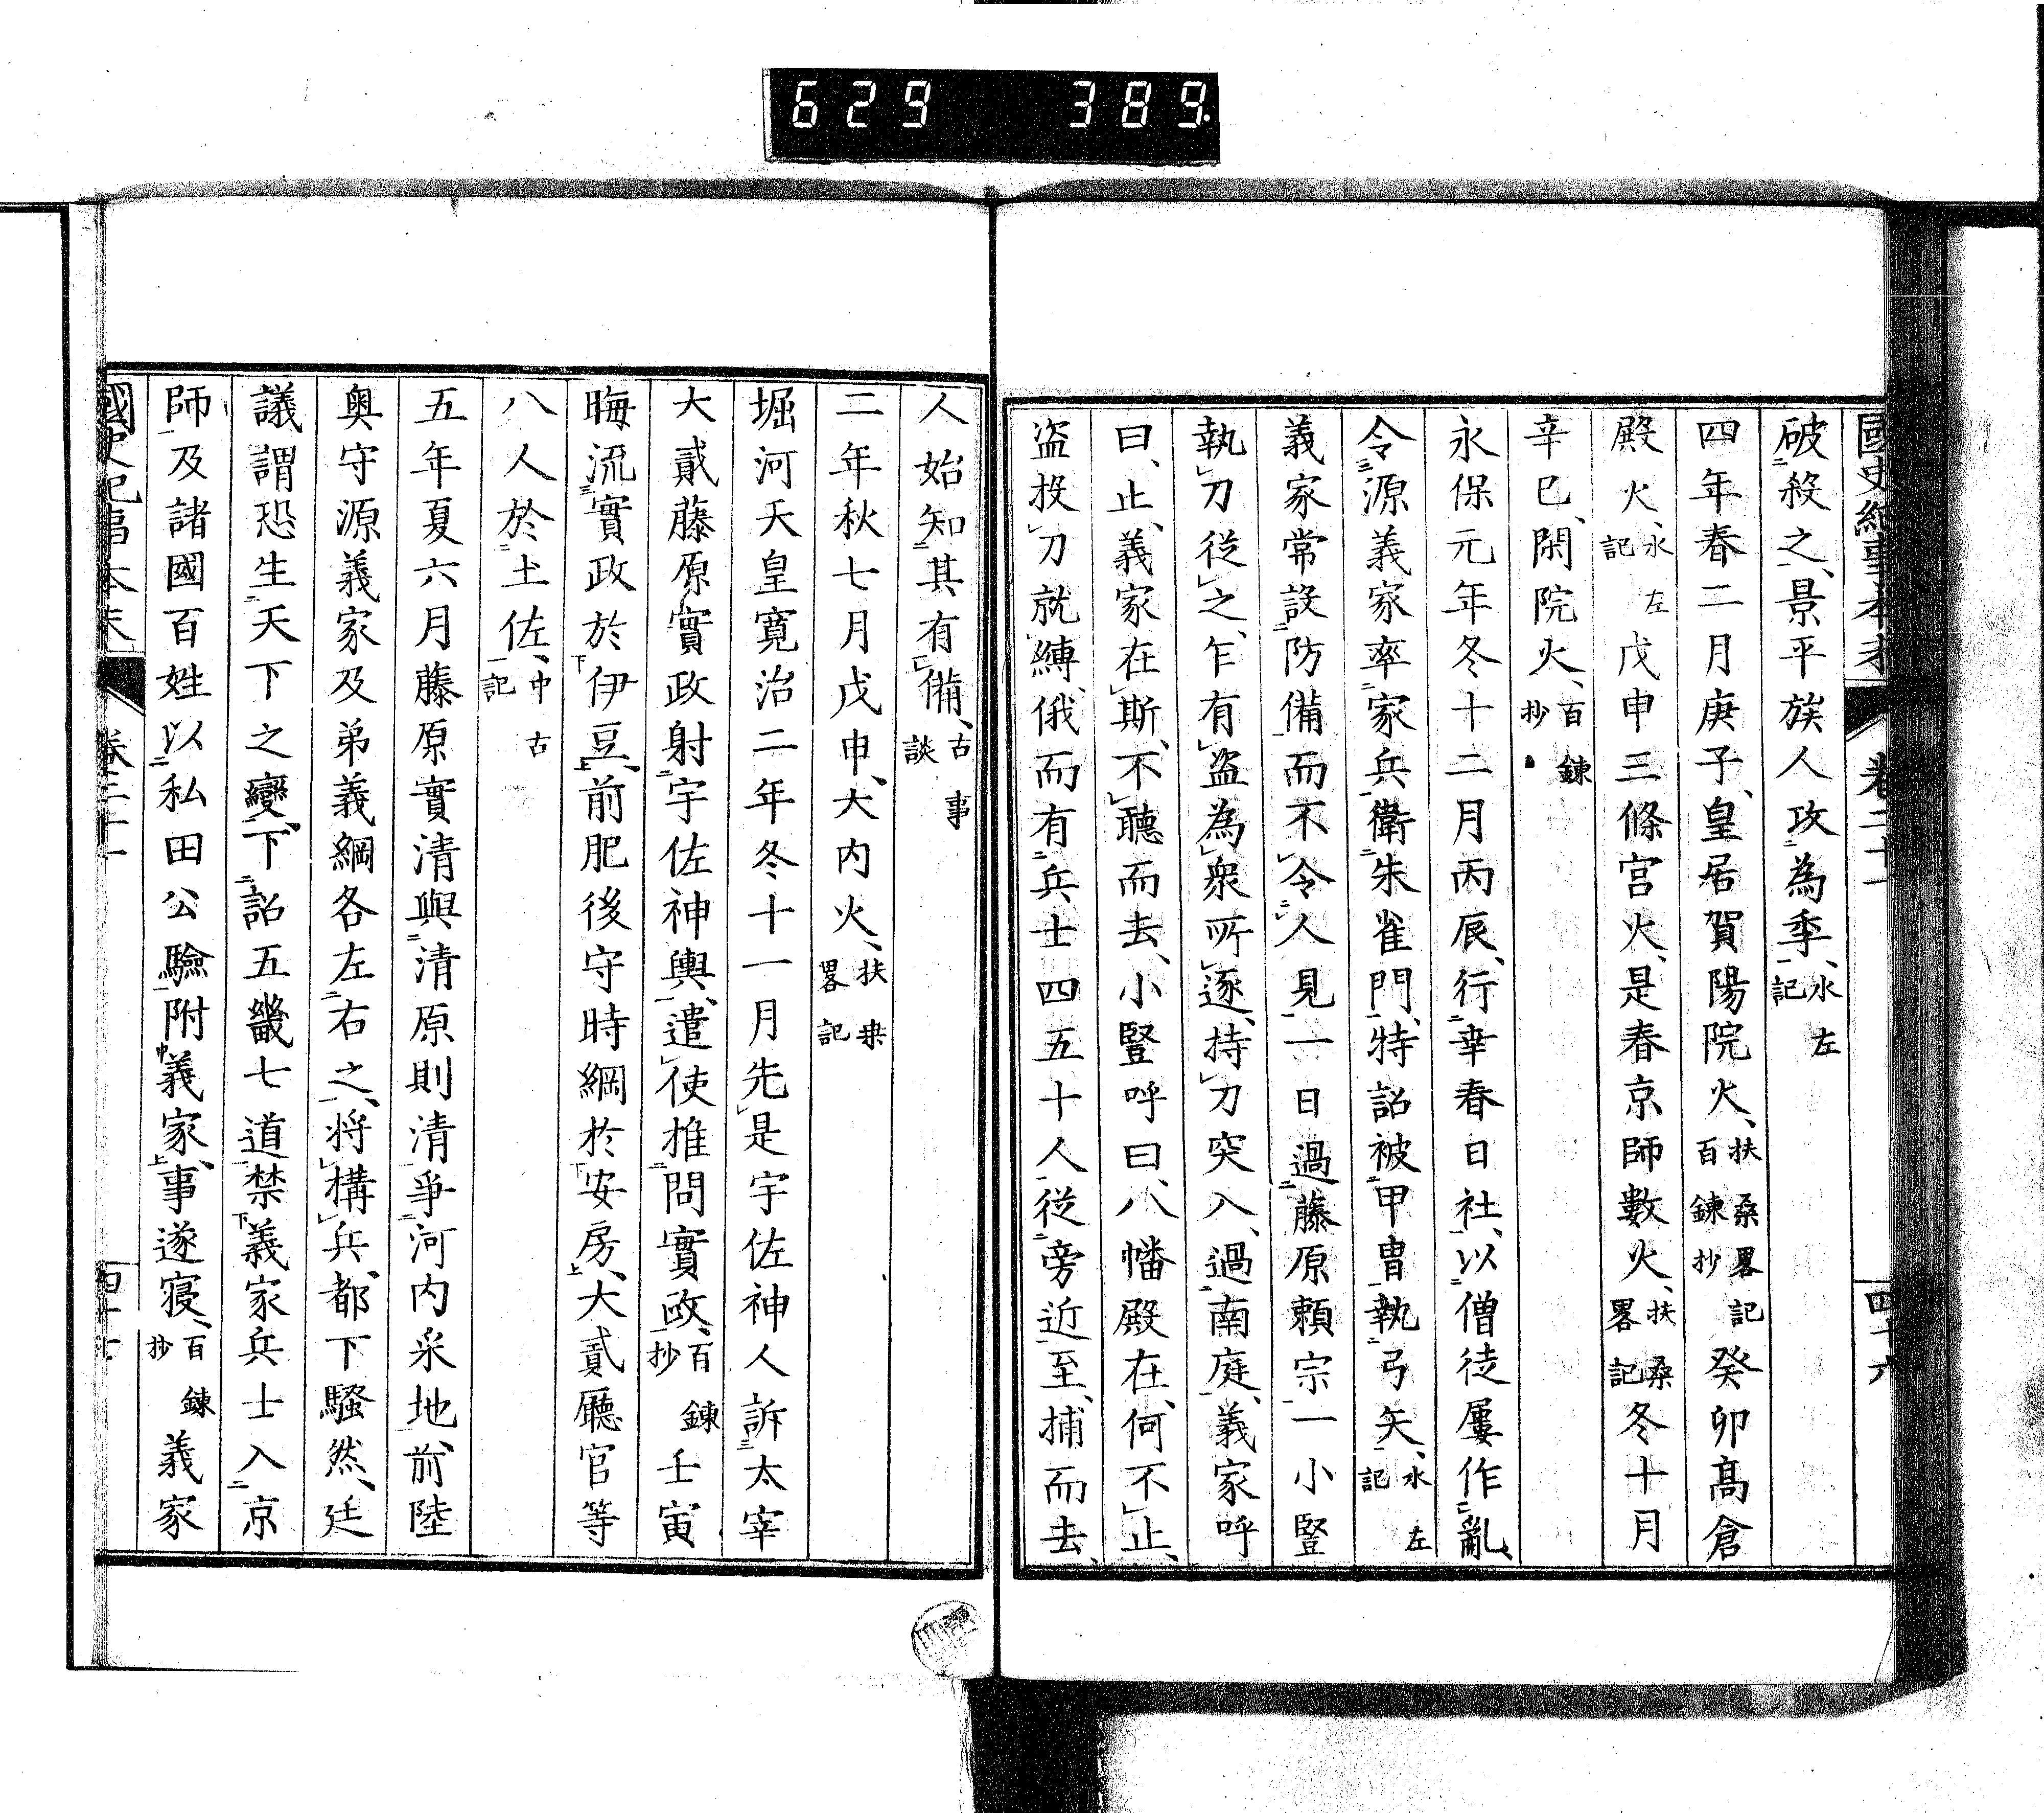 629 389
國史紀事本末 卷二十一 四十六
破殺之、景平族人攻為季、水左記
四年春二月庚子、皇居賀陽院火、扶桑畧記百鍊抄癸卯髙倉
殿火、水左記戊申三條宮火、是春京師數火、扶桑畧記冬十月
辛巳、閑院火、百鍊抄
永保元年冬十二月丙辰、行幸春日社、以僧徒屢作亂、
令源義家率家兵衛朱雀門、特詔被甲冑執弓矢、水左記
義家常設防備而不令人見、一日過藤原頼宗、一小豎
執刀從之、乍有盜為衆所逐、持刀突入、過南庭、義家呼
曰、止、義家在斯、不聽而去、小豎呼曰、八幡殿在、何不止、
盜投刀就縛、俄而有兵士四五十人、從旁近至、捕而去、
人始知其有備、古事談
二年秋七月戊申、大内火、扶桒畧記
堀河天皇寛治二年冬十一月先是宇佐神人訴太宰
大貳藤原實政射宇佐神輿、遣使推問實政、百鍊抄壬寅
晦流實政於伊豆、前肥後守時綱於安房、大貳廳官等
八人於土佐、中古記
五年夏六月藤原實清與清原則清爭河内釆地、前陸
奥守源義家及弟義綱各左右之、将構兵、都下騷然、廷
議謂恐生天下之變、下詔五畿七道禁義家兵士入京
師及諸國百姓以私田公驗附義家、事遂寢、百鍊抄義家
國史紀事本末 卷二十一